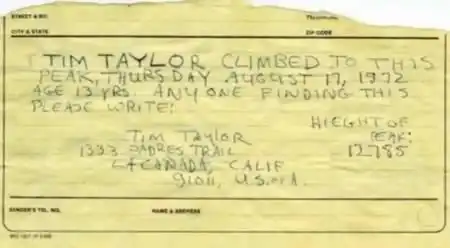 STREET & NO.
CITY & STATE
ZIP CODE
TIM TAYLOR CLIMBED TO THIS
PEAK, THURSDAY AUGUST 17, 1972
AGE 13 YRS. ANY ONE FINDING THIS
PLEASE WRITE:
HIEGHT OF
PEAK:
12785
TIM TAYLOR
1333 PADRES TRAIL
LA CANADA, CALIF
91011, U.S. of A.
SENDER'S TEL. NO.
NAME & ADDRESS